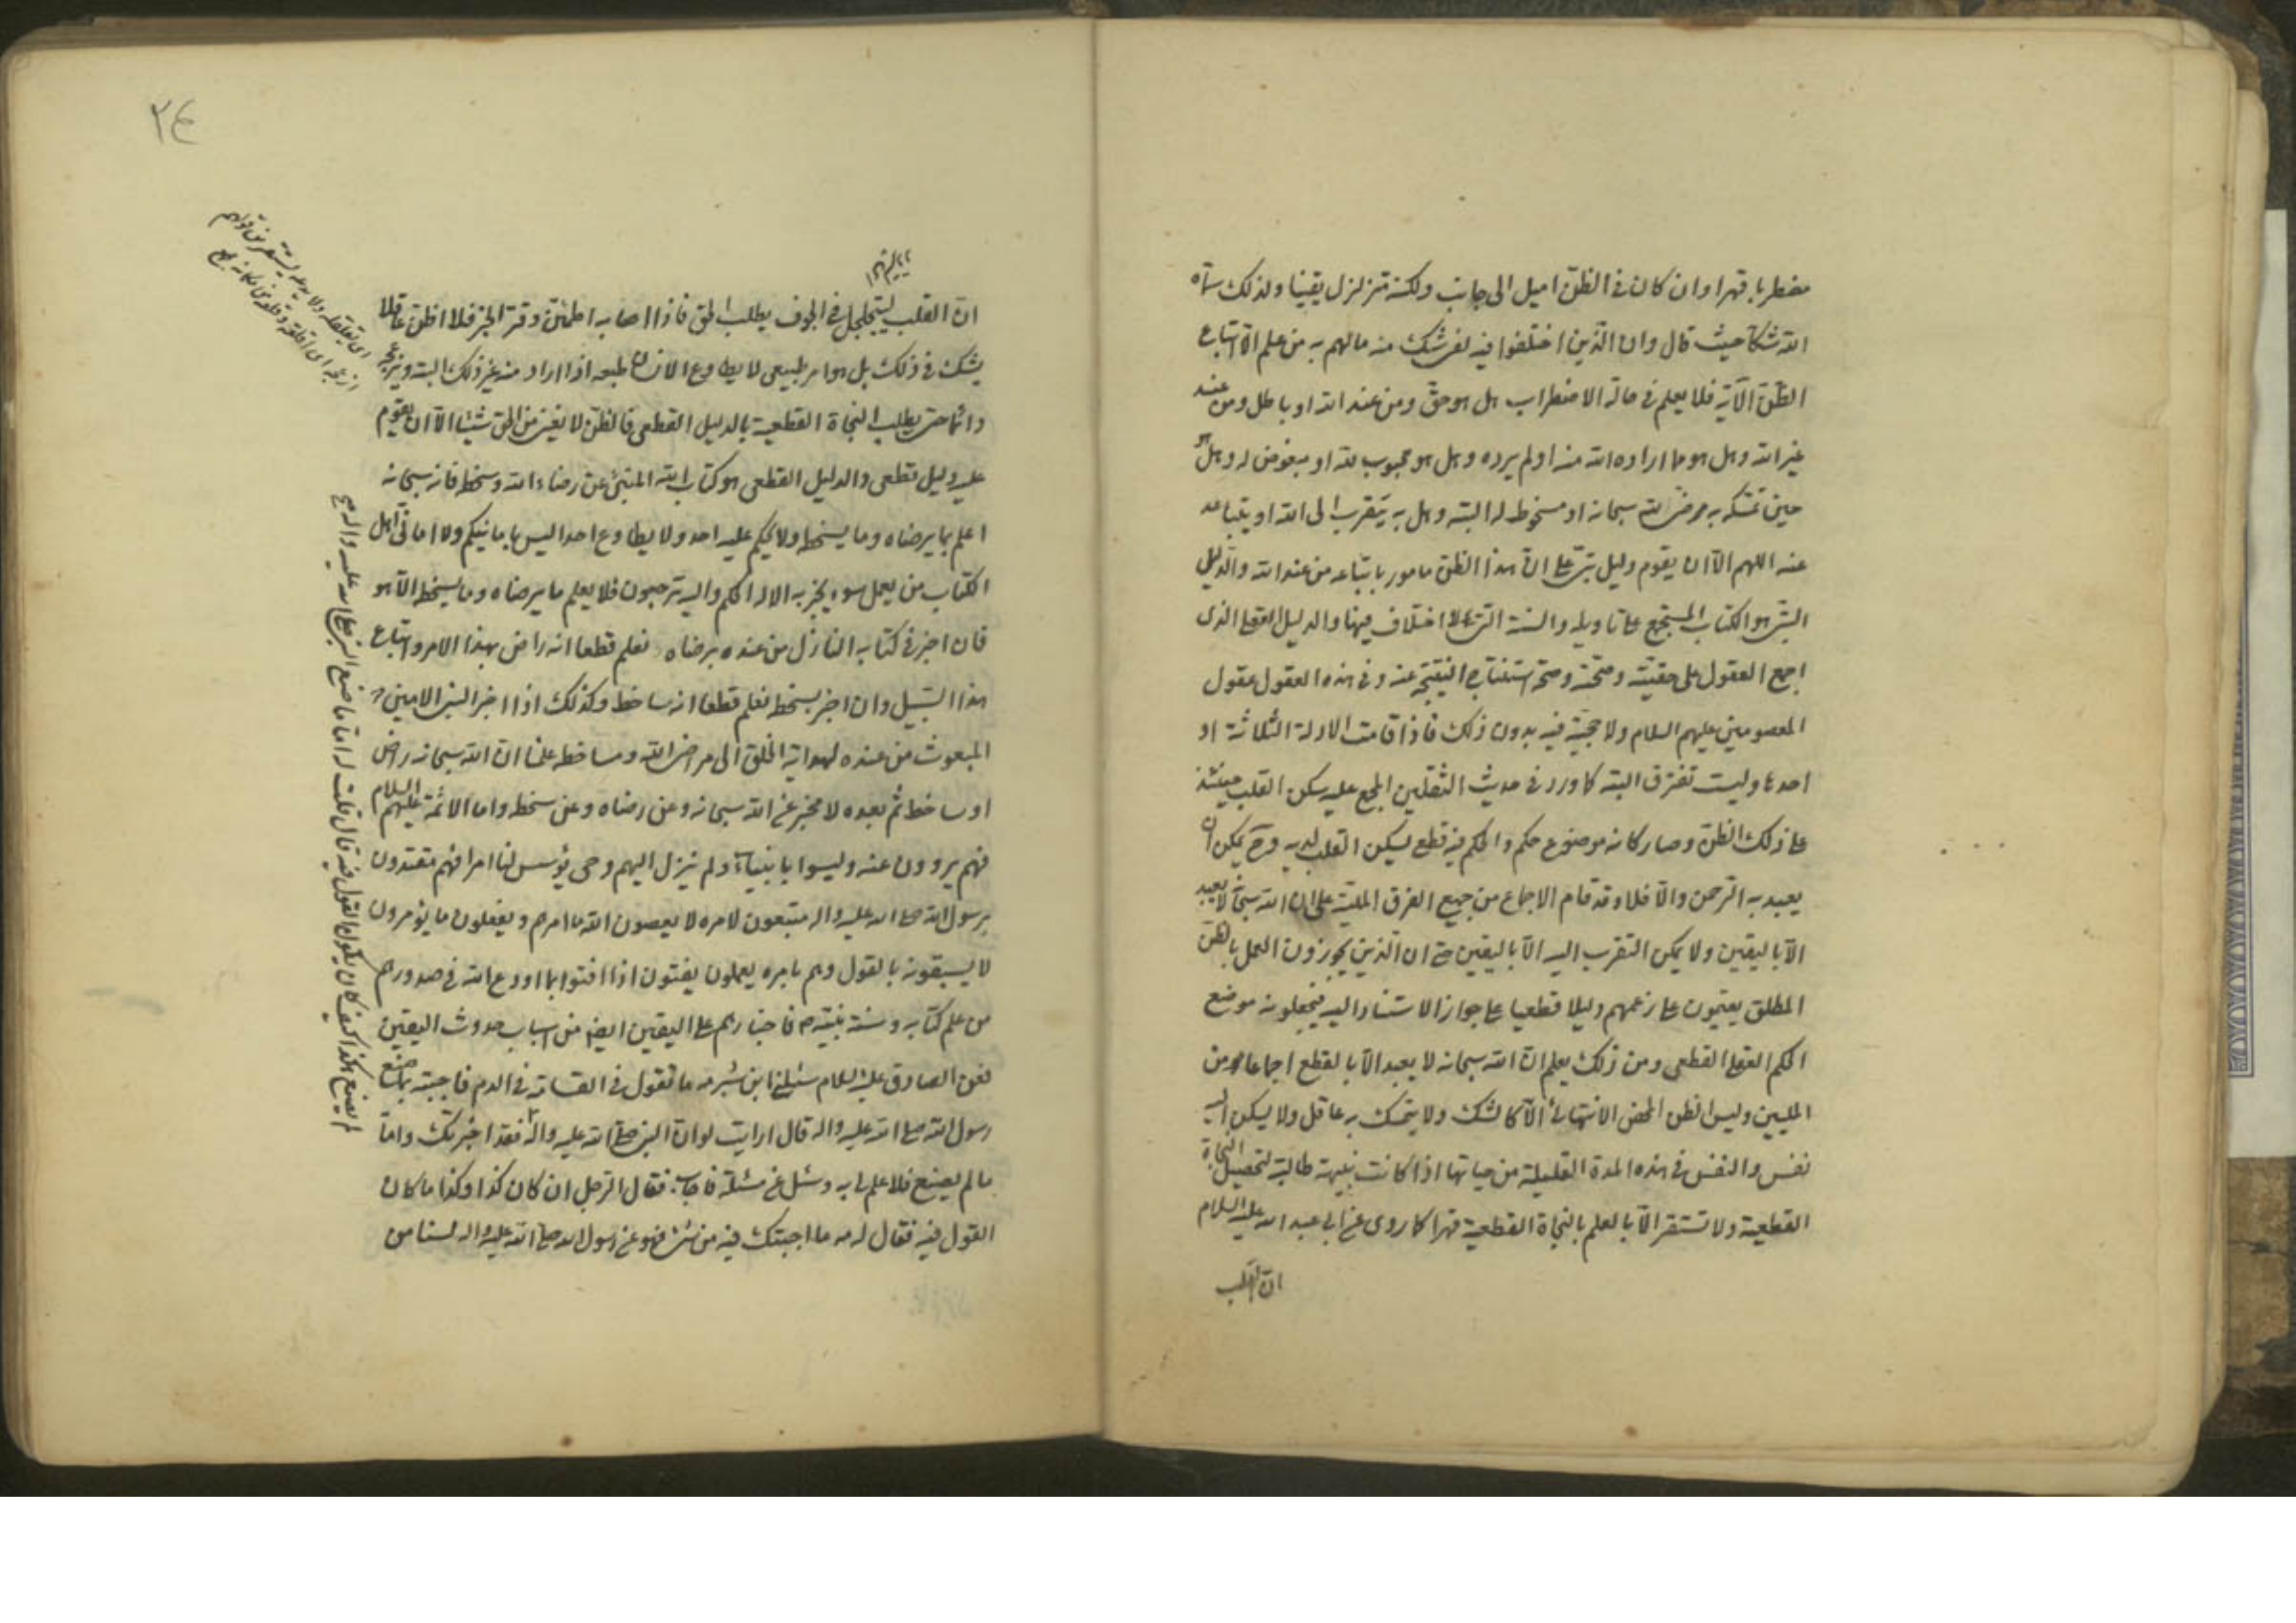 مضطربا قهرا وان كان فى الظن اميل الى جانب ولكنه متزلزل يقينا ولذلك سماه
الله شكا حيث قال وان الذين اختلفوا فيه لفى شك منه مالهم به من علم الا اتباع
الظن الآية فلا يعلم فى حالة الاضطراب هل هو حق ومن عند الله او باطل ومن عند
غير الله وهل هو مما اراده الله منه او لم يرده وهل هو محبوب لله او مبغوض له وهل هو
حين تمسكه به مرضى لله سبحانه او مسخوط له البتة وهل به يتقرب الى الله او يتباعد
عنه اللهم الا ان يقوم دليل على ان هذا الظن مامور باتباعه من عند الله والدليل
هو الكتاب المستجمع على تاويله والسنة التى لا اختلاف فيها والدليل العقلى الذى
اجمع العقول على حقيته وصحته وصحة استنتاج النتيجة عنه وفى هذه العقول عقول
المعصومين عليهم السلام ولا حجية فيه بدون ذلك فاذا قامت الادلة الثلاثة او
احدها وليست تفترق البتة كما ورد فى حديث الثقلين المجمع عليه سكن القلب حينئذ
على ذلك الظن وصار كانه موضوع حكم والحكم فيه قطعى يسكن القلب لديه وح يمكن ان
يعبد به الرحمن والا فلا وقد قام الاجماع من جميع الفرق المليّة على ان الله سبحانه لا يعبد
الا باليقين ولا يمكن التقرب اليه الا باليقين حتى ان الذين يجوزون العمل بالظن
المطلق يقيمون على زعمهم دليلا قطعيا على جواز الاستناد اليه فيجعلونه موضع
الحكم العقلى القطعى ومن ذلك يعلم ان الله سبحانه لا يعبد الا بالقطع اجماعا من
المليين وليس الظن المحض الانتهائى الا كالشك ولا يتمسك به عاقل ولا يسكن اليه
نفس والنفس فى هذه المدة القليلة من حياتها اذا كانت نبيهة طالبة لتحصيل النجاة
القطعية ولا تستقر الا بالعلم بالنجاة القطعية قهرا كما روى عن ابى عبد الله عليه السلام
ان القلب
٢٤
ان القلب ليتجلجل فى الجوف يطلب الحق فاذا اصابه اطمئن وقر الخبر فلا اظن عاقلا
يشك فى ذلك بل هو امر طبيعى لا يطاوع الانسان طبعه اذا اراد منه غير ذلك البتة ويزعجه
دائما حتى يطلب النجاة القطعية بالدليل القطعى فالظن لا يغنى من الحق شيئا الا ان يقوم
عليه دليل قطعى والدليل القطعى هو كتاب الله المنبئ عن رضاء الله وسخطه فانه سبحانه
اعلم بما يرضاه وما يسخطه ولا يحكم عليه احد ولا يطاوع احدا ليس بامانيكم ولا امانى اهل
الكتاب من يعمل سوء يجز به الا له الحكم واليه ترجعون فلا يعلم ما يرضاه وما يسخطه الا هو
فان اخبر فى كتابه النازل من عنده برضاه نعلم قطعا انه راض بهذا الامر واتباع
هذا السبيل وان اخبر بسخطه نعلم قطعا انه ساخط وكذلك اذا اخبر النبى الامين
المبعوث من عنده لهداية الخلق الى مراضى الله ومساخطه علمنا ان الله سبحانه راض
او ساخط ثم بعده لا مخبر عن الله سبحانه وعن رضاه وعن سخطه واما الائمة عليهم السلام
فهم يروون عنه وليسوا بانبياء ولم ينزل اليهم وحى يؤسس لنا امرا فهم مقتدون
برسول الله صلى الله عليه واله متبعون لامره لا يعصون الله ما امرهم ويفعلون ما يؤمرون
لا يسبقونه بالقول وهم بامره يعملون يفتون اذا افتوا بما اودع الله فى صدورهم
من علم كتابه وسنة نبيه ص فاخبارهم على اليقين ايضا من اسباب حدوث اليقين
فعن الصادق عليه السلام سئلنى ابن شبرمه ما تقول فى القسامة فى الدم فاجبته بما صنع
رسول الله صلى الله عليه واله قال ارايت لو ان النبى صلى الله عليه واله فقد اخبرتك واما
ما لم يصنع فلا علم لى به وسئل عن مسئلة فاجاب فقال الرجل ان كان كذا وكذا ما كان
القول فيه فقال له مه ما اجبتك فيه من شئ فهو عن رسول الله صلى الله عليه واله لسنا من
لم يصنع هكذا كيف كان يكون القول فيه قال قلت له اما ما صنع النبى صلى الله عليه واله